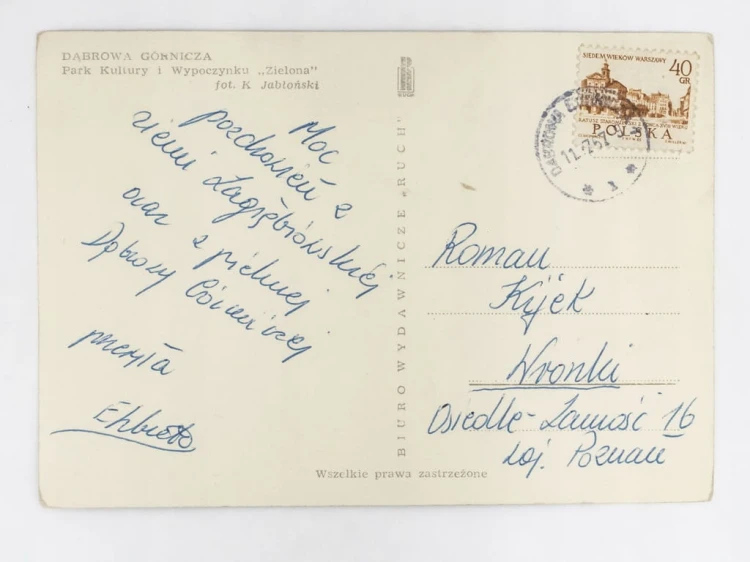 DĄBROWA GÓRNICZA
Park Kultury i Wypoczynku „Zielona"
fot. K Jabłoński
Moc
pozdrowień z
ziemi Zagłębiowskiej
oraz z pięknej
Dąbrowy Górniczej
przesyła
Elżbieta
BIURO WYDAWNICZE „RUCH"
Wszelkie prawa zastrzeżone
SIEDEM WIEKÓW WARSZAWY
40
GR
POLSKA
DĄBROWA GÓRNICZA
1
Roman
Kijek
Wronki
Osiedle-Zamość 16
woj. Poznań